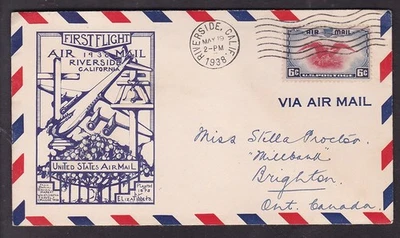 FIRST FLIGHT
AIR 1938 MAIL
RIVERSIDE
CALIFORNIA
UNITED STATES AIR MAIL
RIVERSIDE, CALIF.
MAY 19
2-PM
1938
AIR MAIL
6¢ U.S. POSTAGE 6¢
VIA AIR MAIL
Miss Stella Proctor
"Millbank"
Brighton
Ont. Canada.